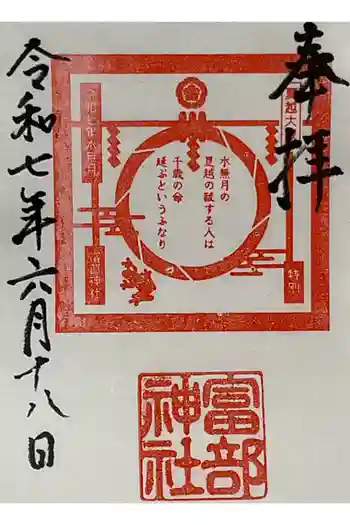 奉拝
夏越大
特別
水無月の
夏越の祓する人は
千歳の命
延ぶというふなり
令和七年水無月
神社
令和七年六月十八日
富部
神社